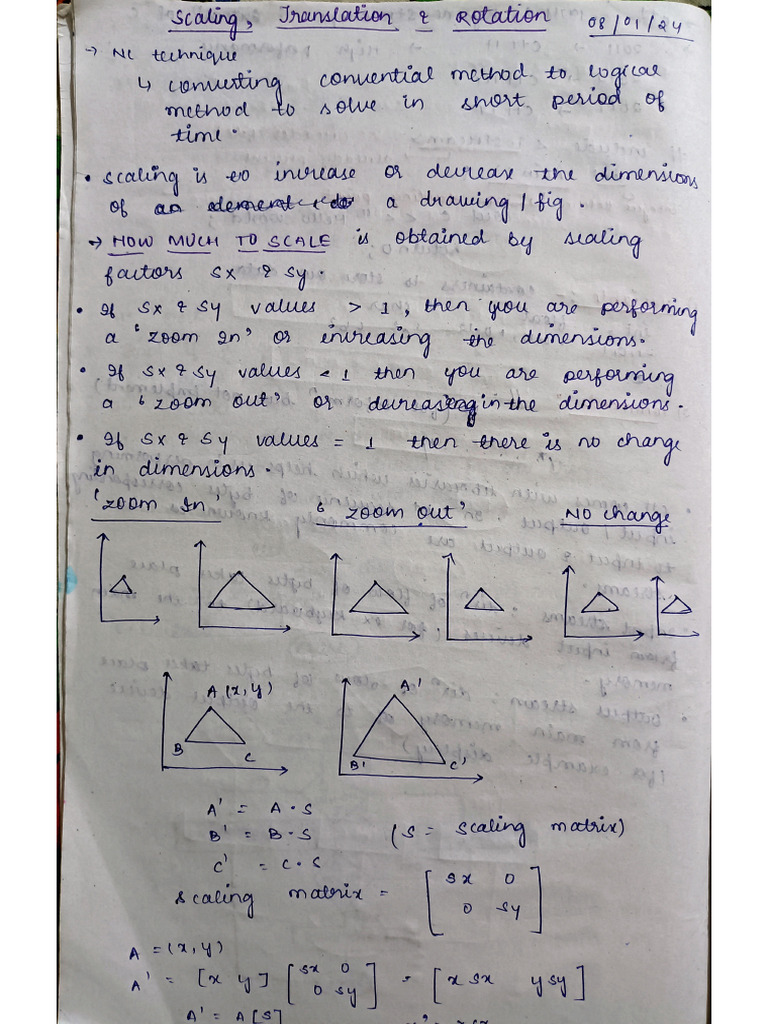 Scaling, Translation & Rotation 08/01/24
→ NC technique
↳ converting convential method to logical
method to solve in short period of
time.
• Scaling is to increase or decrease the dimensions
of an element a drawing / fig.
→ HOW MUCH TO SCALE is obtained by scaling
factors Sx & Sy.
• If Sx & Sy values > 1, then you are performing
a 'zoom In' or increasing the dimensions.
• If Sx & Sy values < 1 then you are performing
a 'zoom out' or decreasing in the dimensions.
• If Sx & Sy values = 1 then there is no change
in dimensions.
'zoom In' 'zoom out' NO change
A(x,y) A'
B C B' C'
A' = A·S
B' = B·S (S = scaling matrix)
C' = C·S
scaling matrix = [sx 0
0 sy]
A = (x,y)
A' = [x y] [sx 0
0 sy] = [x sx y sy]
A' = A[S]